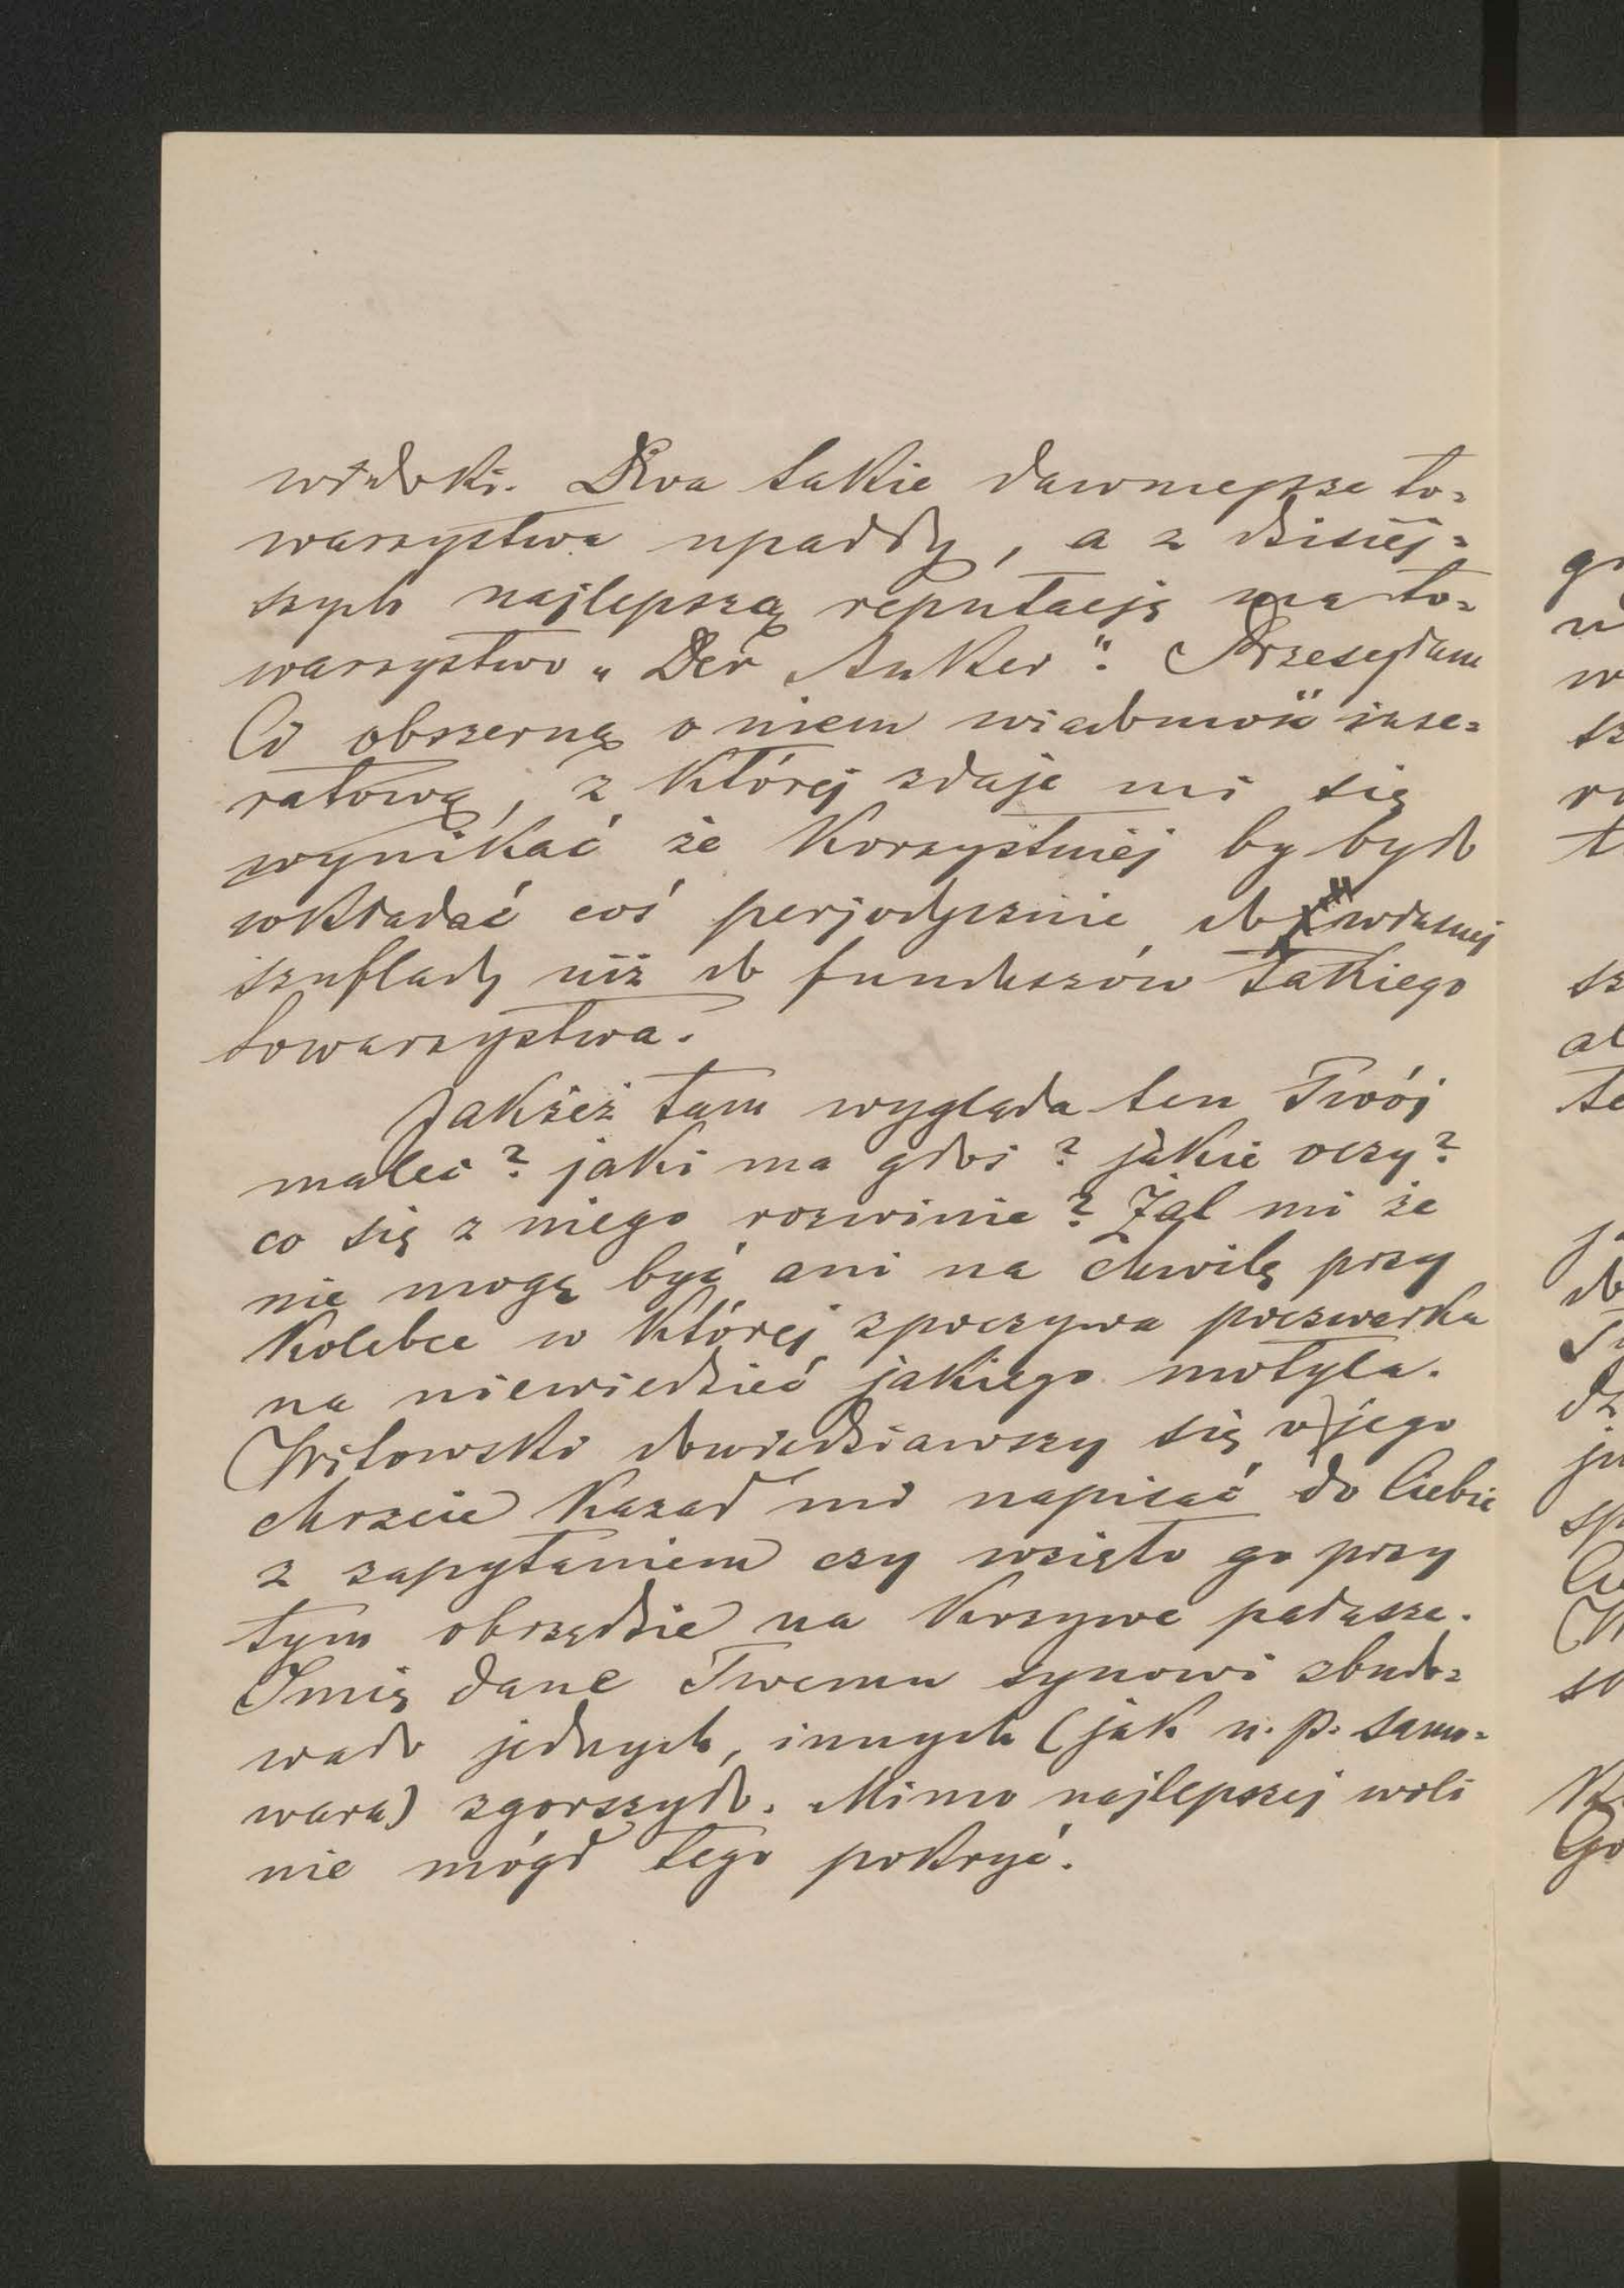 widoki. Dwa takie dawniejsze to=
warzystwa upadły, a z dzisiej=
szych najlepszą reputacją ma to=
warzystwo „Der Anker“. Przesyłam
Ci obszerną o niem wiadomość inse=
ratową, z której zdaje mi się
wynikać że korzystniej by było
wkładać coś perjodycznie do własnej
szuflady niż do funduszów takiego
towarzystwa.
Jakżeż tam wygląda ten Twój
malec? jaki ma głos? jakie oczy?
co się z niego rozwinie? Żal mi że
nie mogę być ani na chwilę przy
kolebce w której spoczywa poczwarka
na niewiedzieć jakiego motyla.
Witowski dowiedziawszy się o jego
chrzcie kazał mi napisać do Ciebie
z zapytaniem czy wzięto go przy
tym obrzędzie na krzywe pałasze.
Imię dane Twemu synowi zbudo=
wało jednych, innych (jak n.p. samo=
wara) zgorszyło. Mimo najlepszej woli
nie mógł tego pokryć.